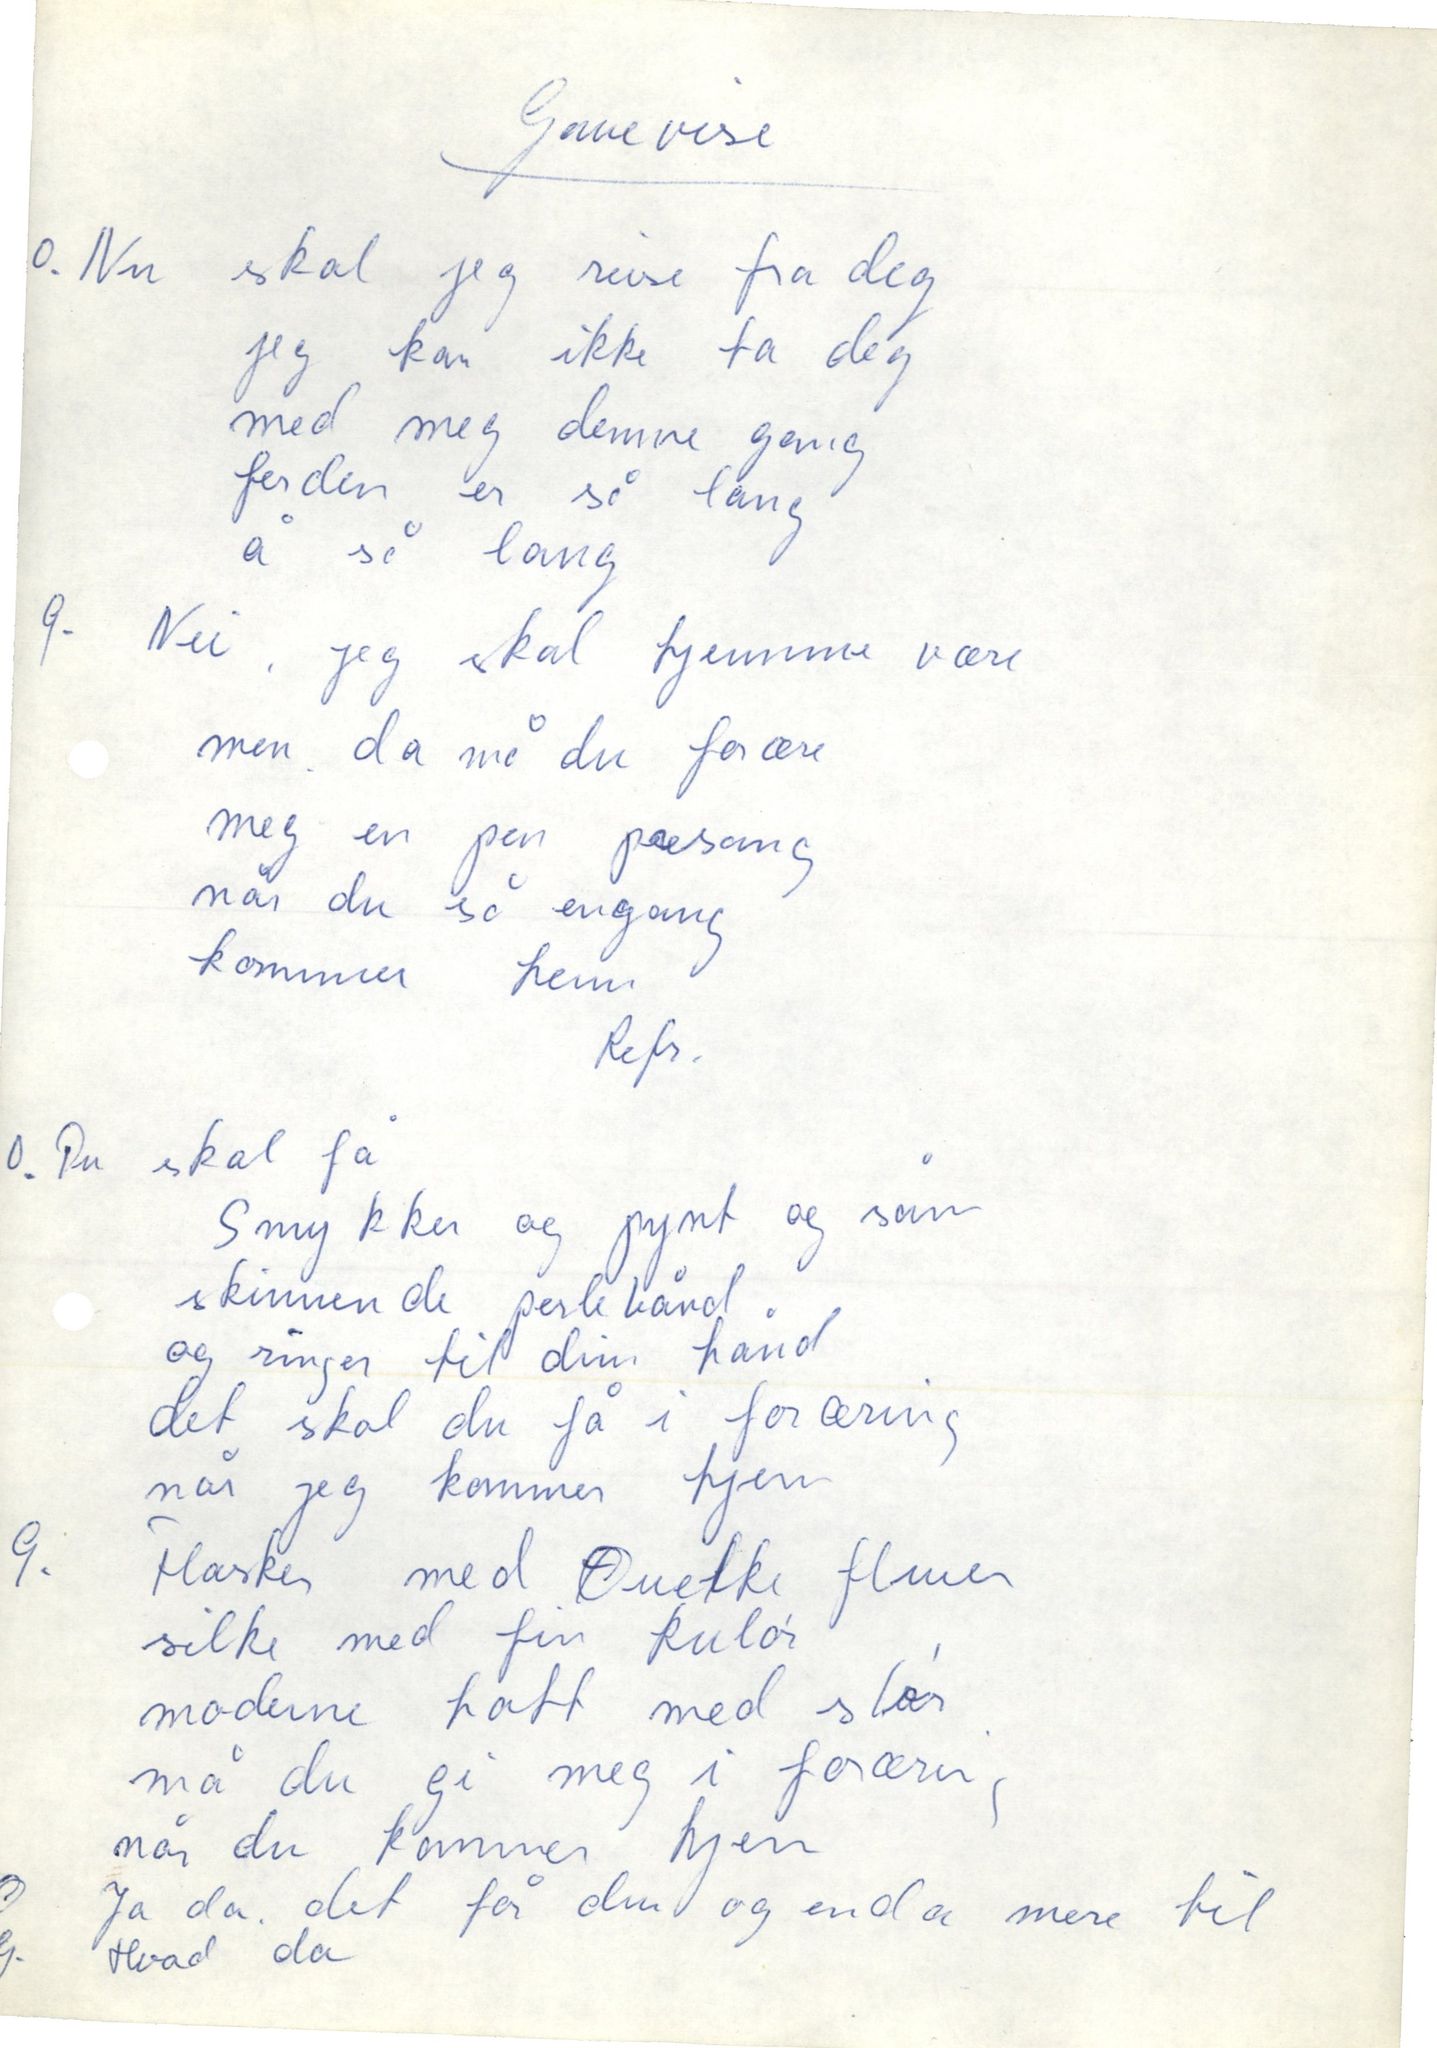 Gavevise
O. Nu skal jeg reise fra deg
jeg kan ikke ta deg
med meg denne gang
ferden er så lang
å så lang
G. Nei, jeg skal hjemme være
men. da må du forære
meg en pen presang
når du så engang
kommer hem
Refr.
O. Du skal få
Smykker og pynt og sån
skinnende perlebånd.
og ringer til din hånd
det skal du få i foræring
når jeg kommer hjem
G. Flasker med
silke med fin kulør
moderne hatt med slør
må du gi meg i foræring
når du kommer hjem
O Ja da. det får du og enda mere til
G. Hvad da